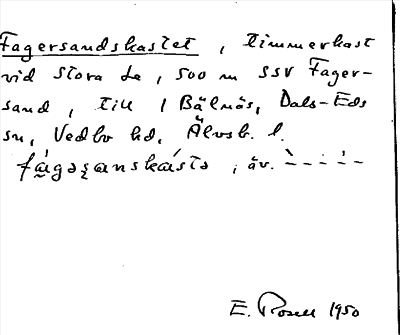 Fagersandskastet, timmerkast
vid Stora Le, 500 m SSV Fager-
sand, till 1 Bälnäs, Dals-Eds
sn, Vedbo hd, Älvsb. l.
, äv.
E. Rosell 1950